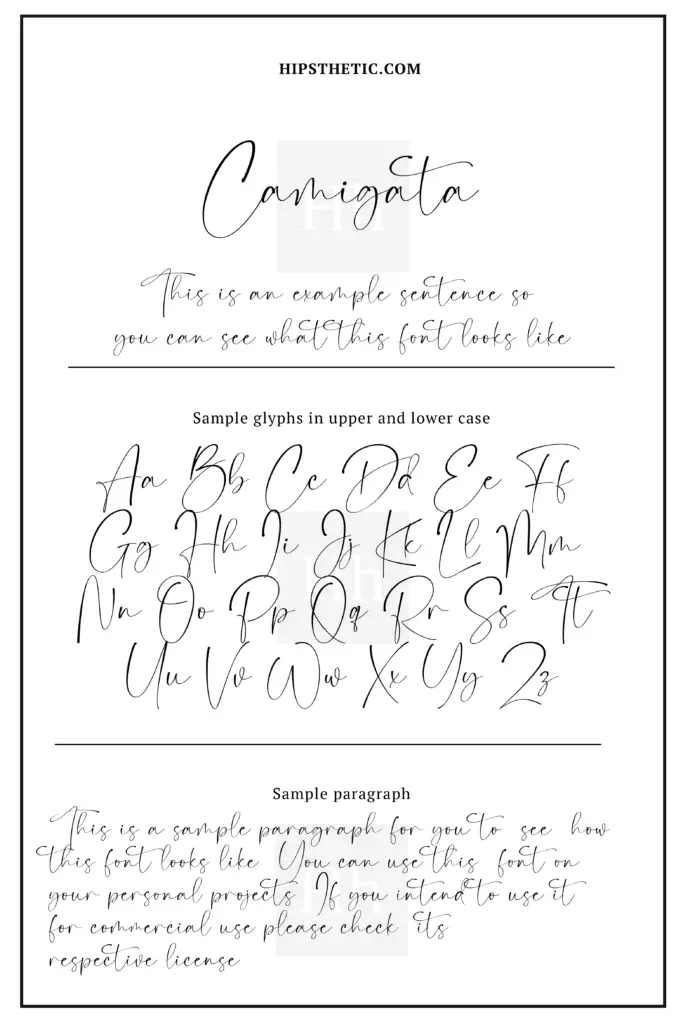 HIPSTHETIC.COM
Camigata
This is an example sentence so
you can see what this font looks like
Sample glyphs in upper and lower case
Aa Bb Cc Dd Ee Ff
Gg Hh Ii Jj Kk Ll Mm
Nn Oo Pp Qq Rr Ss Tt
Uu Vv Ww Xx Yy Zz
Sample paragraph
This is a sample paragraph for you to see how
this font looks like You can use this font on
your personal projects If you intend to use it
for commercial use please check its
respective license